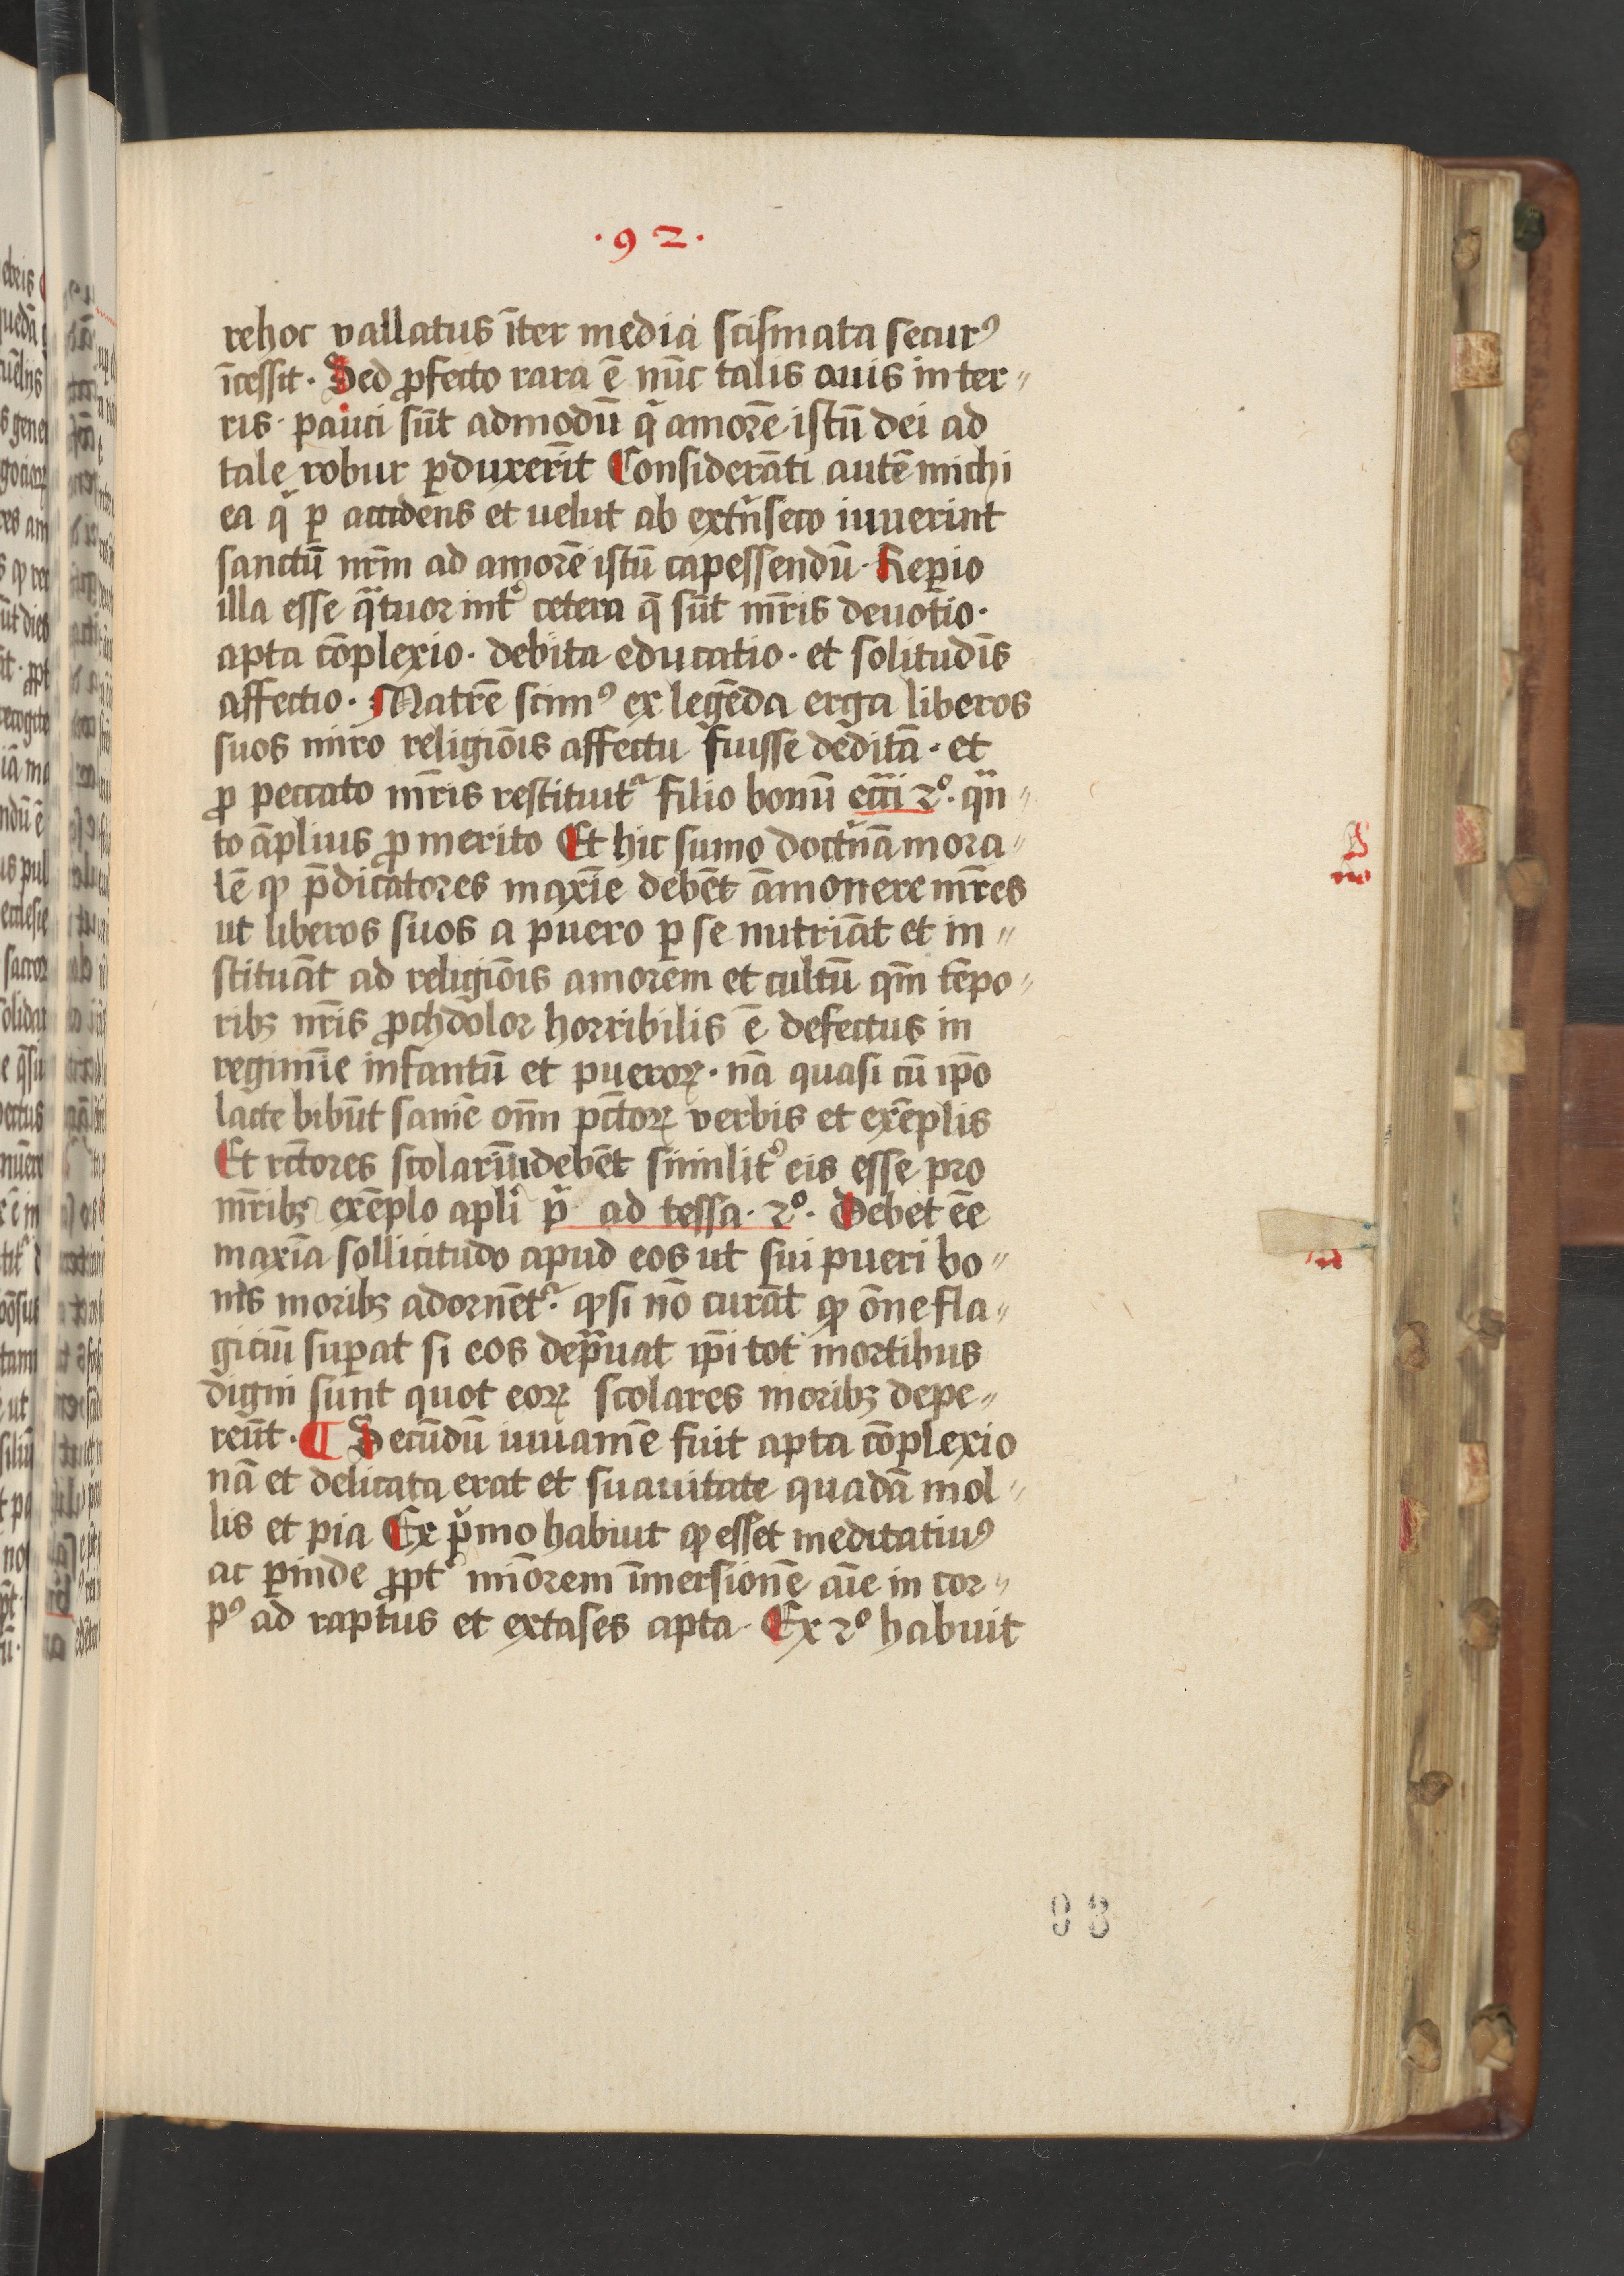 ·92·
rehoc vallatus īter media scismata securꝰ
īcessit· Sed ꝓfecto rara ē nūc talis auis in ter〃
ris· pauci sūt admodū qͥ amorē istū dei ad
tale robur ꝑduxerīt Considerāti autē michi
ea q̄ ꝑ accidens et uelut ab extͥnseco iuuerint
sanctū nr̄m ad amorē istū capessendū· Reꝑio
illa esse qͣtuor intͬ cetera q̄ sūt mr̄is deuotio·
apta cōplexio· debita educatio· et solitudīs
affectio· Matrē scimꝰ ex legēda erga liberos
suos miro religiōis affectu fuisse deditā· et
ꝓ peccato mr̄is restituitͬ filio bonū ecc̄i 2º· qͣn〃
to āplius ꝓ merito Et hic sumo doctͥnā mora〃
lē ꝙ p̄dicatores maxīe debēt āmonere mr̄es
ut liberos suos a puero ꝑ se nutriāt et in〃
stituāt ad religiōis amorem et cultū qm̄ tēpo〃
ribꝫ nr̄is ꝓchdolor horribilis ē defectus in
regimīe infantū et pueroꝝ· nā quasi cū ip̄o
lacte bibūt saniē om̄n pctōꝝ verbis et exēplis
Et rc̄tores scolariū debēt similitͬ eis esse pro
mr̄ibꝫ exēplo apl̄i pͥ· ad tessa· 2º· Debet eē̄
maxīa sollicitudo apud eos ut sui pueri bo〃
nīs moribꝫ adornētͬ· ꝙ si nō curāt ꝙ ōne fla〃
giciū suꝑat si eos depͣuāt ip̄i tot mortibus
digni sunt quot eoꝝ scolares moribꝫ depe〃
reūt· ¶ Secūdū iuuamē fuit apta cōplexio
nā et delicata erat et suauitate quadā mol〃
lis et pia Ex pͥmo habuit ꝙ esset meditatiuꝰ
ac ꝑinde ꝓptͬ minōrem īmersionē aīe in cor〃
pꝰ ad raptus et extases apta· Ex 2º habuit
93